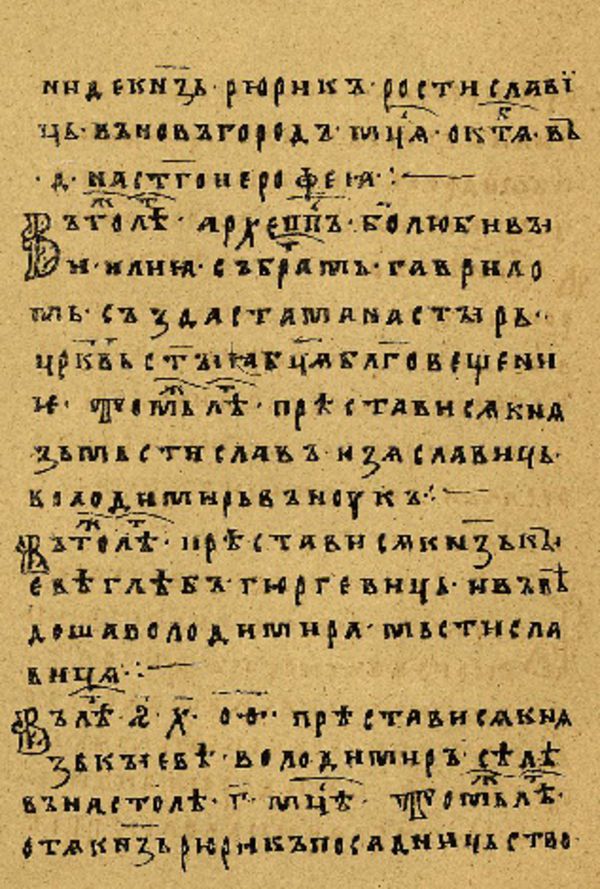 индекнѧзь · рюрикъ · ростиславі
ць · въновъгородъ · мцѧ · октѧ · въ
· д · настгоиерофеꙗ ·:—
Въто же лѣтⷪ · архⷯепⷭпъ · б҃олюбивъ
и · илиꙗ · събратмь · гаврило
мь · създастаманастырь ·
црк҃вьстыꙗбц҃ѧблаговещени
ꙗ · Томьжелѣⷮ · прѣстависѧкнѧ
зьмьстиславъ · изѧславиць ·
володимирьвънукъ ·:—
Въто же лѣⷮ · прѣстависѧкн҃зькꙑ
евѣглѣбъ · гюргевиць · ивъве
дошаволодимира · мьстисла
виця ·:—
Въ лѣⷮ · ҂ѕ · х҃ · о҃ · ѳ҃ · прѣстависѧкнѧ
зькꙑевѣ · володимиръ · сѣдѣ
въ настолѣ · г҃ · мцѣ · Томьжелѣⷮ ·
отѧкн҃зьрюрикъпосадницьство ·